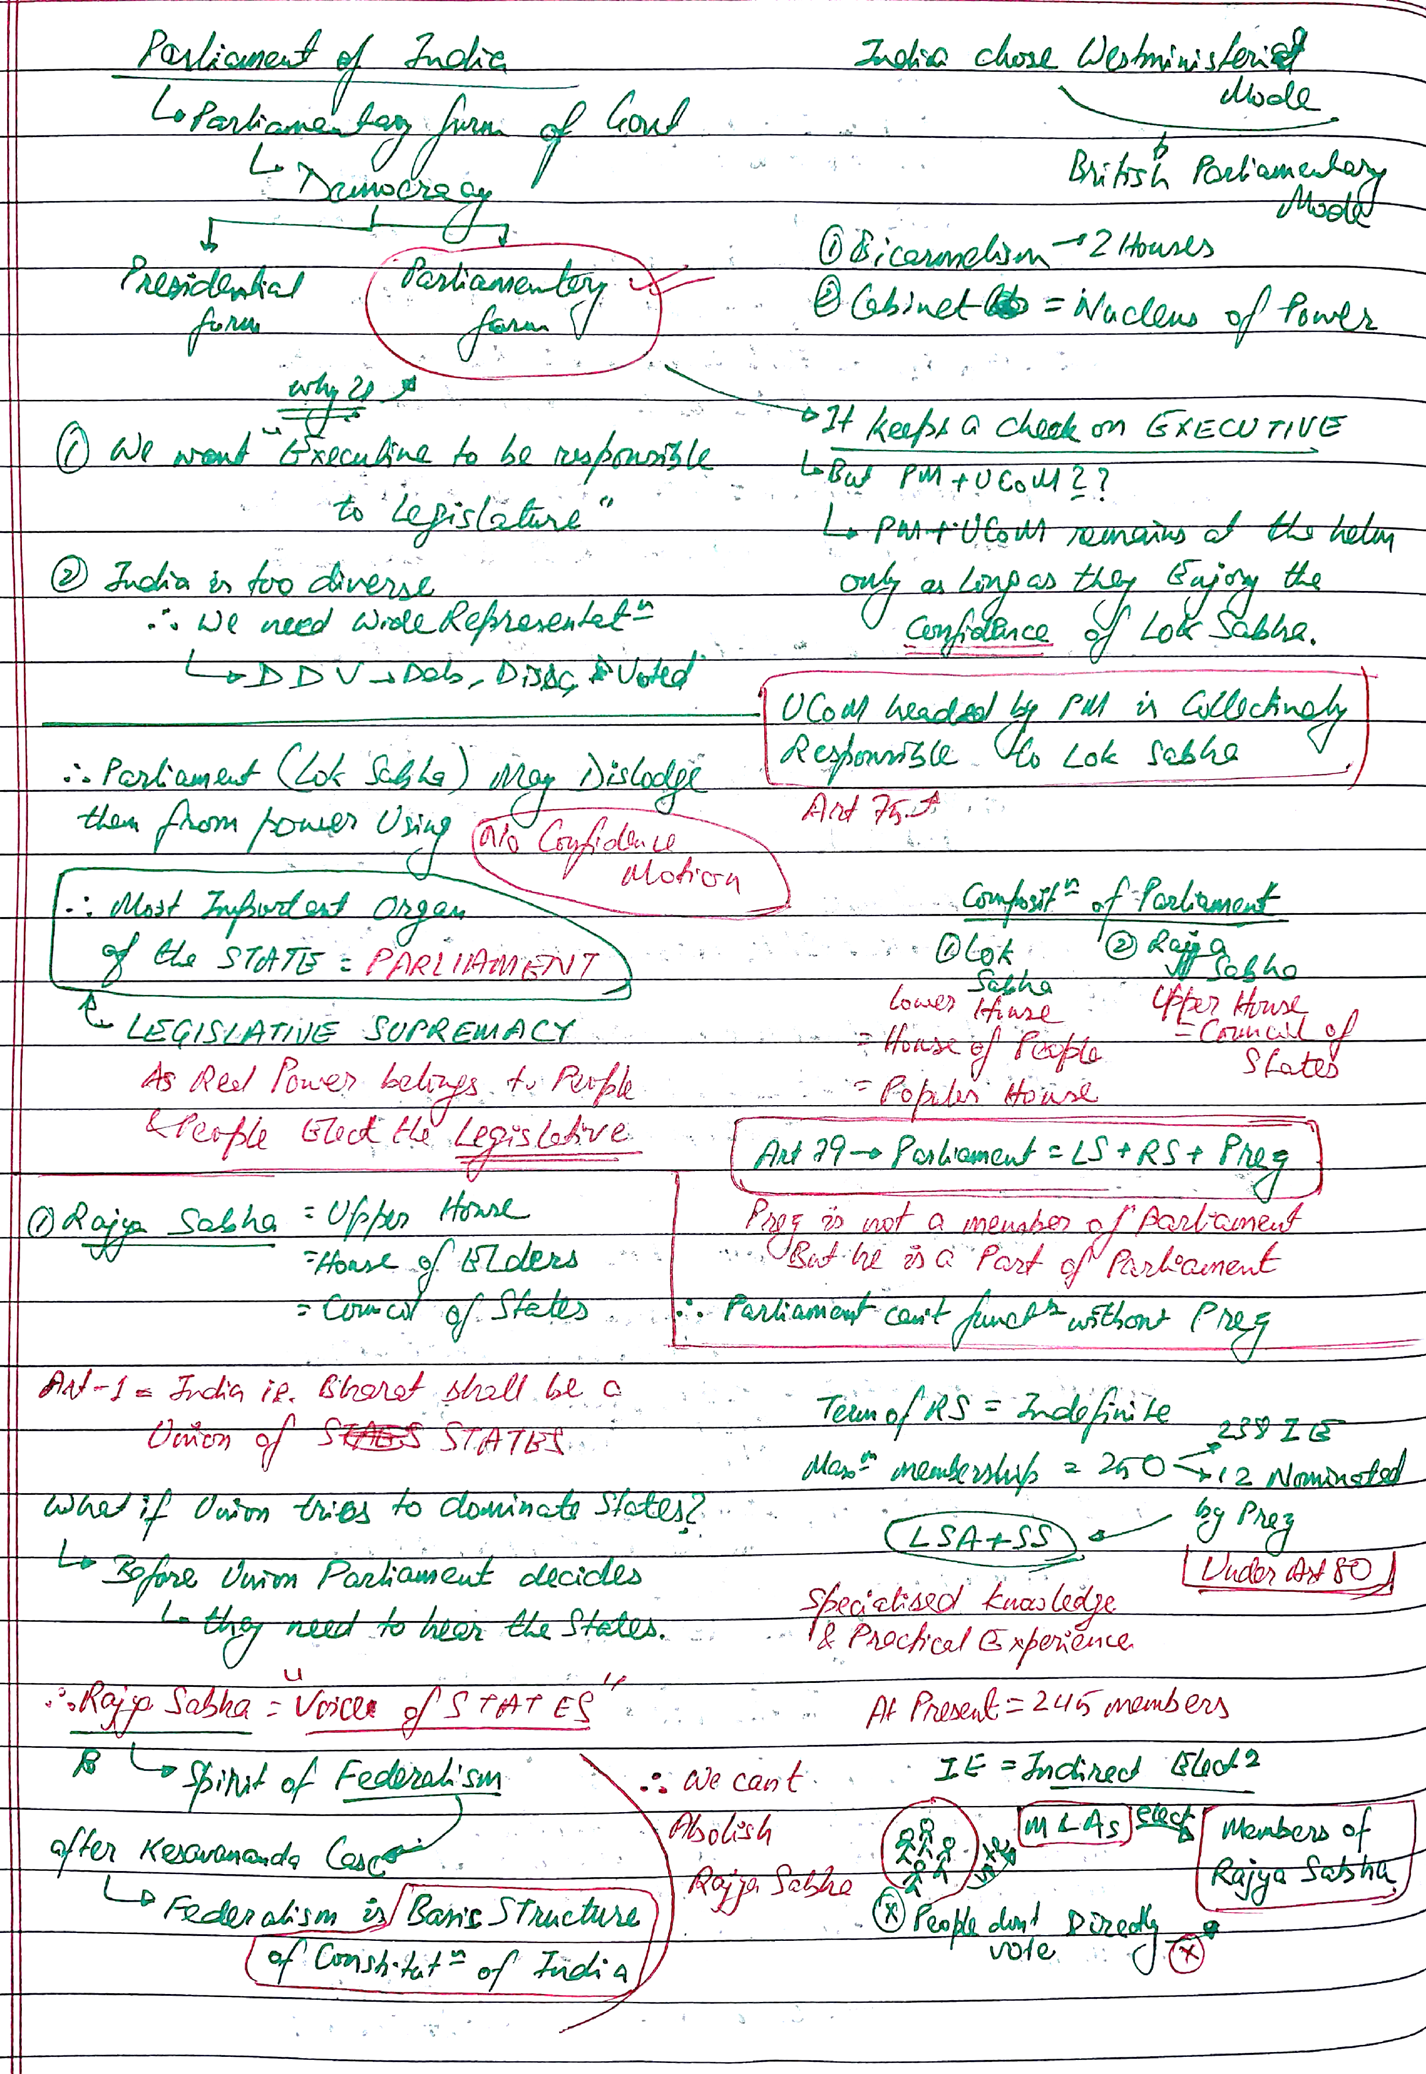 Parliament of India
↳ Parliamentary form of Govt
↳ Democracy
Presidential form
Parliamentary form
why?
① We want "Executive to be responsible
to "Legislature"
② India is too diverse
∴ We need Wide Representatⁿ
↳ D D V → Deb, Disc, & Voted
∴ Parliament (Lok Sabha) May Dislodge
them from power Using
No Confidence
Motion
∴ Most Important Organ
of the STATE = PARLIAMENT
↳ LEGISLATIVE SUPREMACY
As Real Power belongs to People
& People Elect the Legislative
India chose Westministerial
Mode
British Parliamentary
Mode
① Bicarmelism → 2 Houses
② Cabinet = Nucleus of Power
→ It keeps a check on EXECUTIVE
↳ But PM + UCoM ??
↳ PM + UCoM remains at the helm
only as long as they Enjoy the
Confidence of Lok Sabha.
UCoM headed by PM is Collectively
Responsible to Lok Sabha
Art 75
Compositⁿ of Parliament
① Lok
Sabha
Lower House
= House of People
= Popular House
② Rajya
Sabha
Upper House
= Council of
States
Art 79 → Parliament = LS + RS + Prez
Prez is not a member of Parliament
But he is a Part of Parliament
∴ Parliament can't functⁿ without Prez
① Rajya Sabha = Upper House
= House of Elders
= Council of States
Art-1 = India i.e. Bharat shall be a
Union of STATES
What if Union tries to dominate States?
↳ Before Union Parliament decides
↳ they need to hear the States.
∴ Rajya Sabha = "Voice of STATES"
↳ Spirit of Federalism
after Kesavananda Case
↳ Federalism is Basic Structure
of Constitutⁿ of India
∴ We can't
Abolish
Rajya Sabha
Term of RS = Indefinite
Maxᵐ membership = 250
238 IE
12 Nominated
by Prez
Under Art 80
LSA + SS
Specialised knowledge
& Practical Experience
At Present = 245 members
IE = Indirect Elect
MLAs elect
Members of
Rajya Sabha
People dont Directly
vote